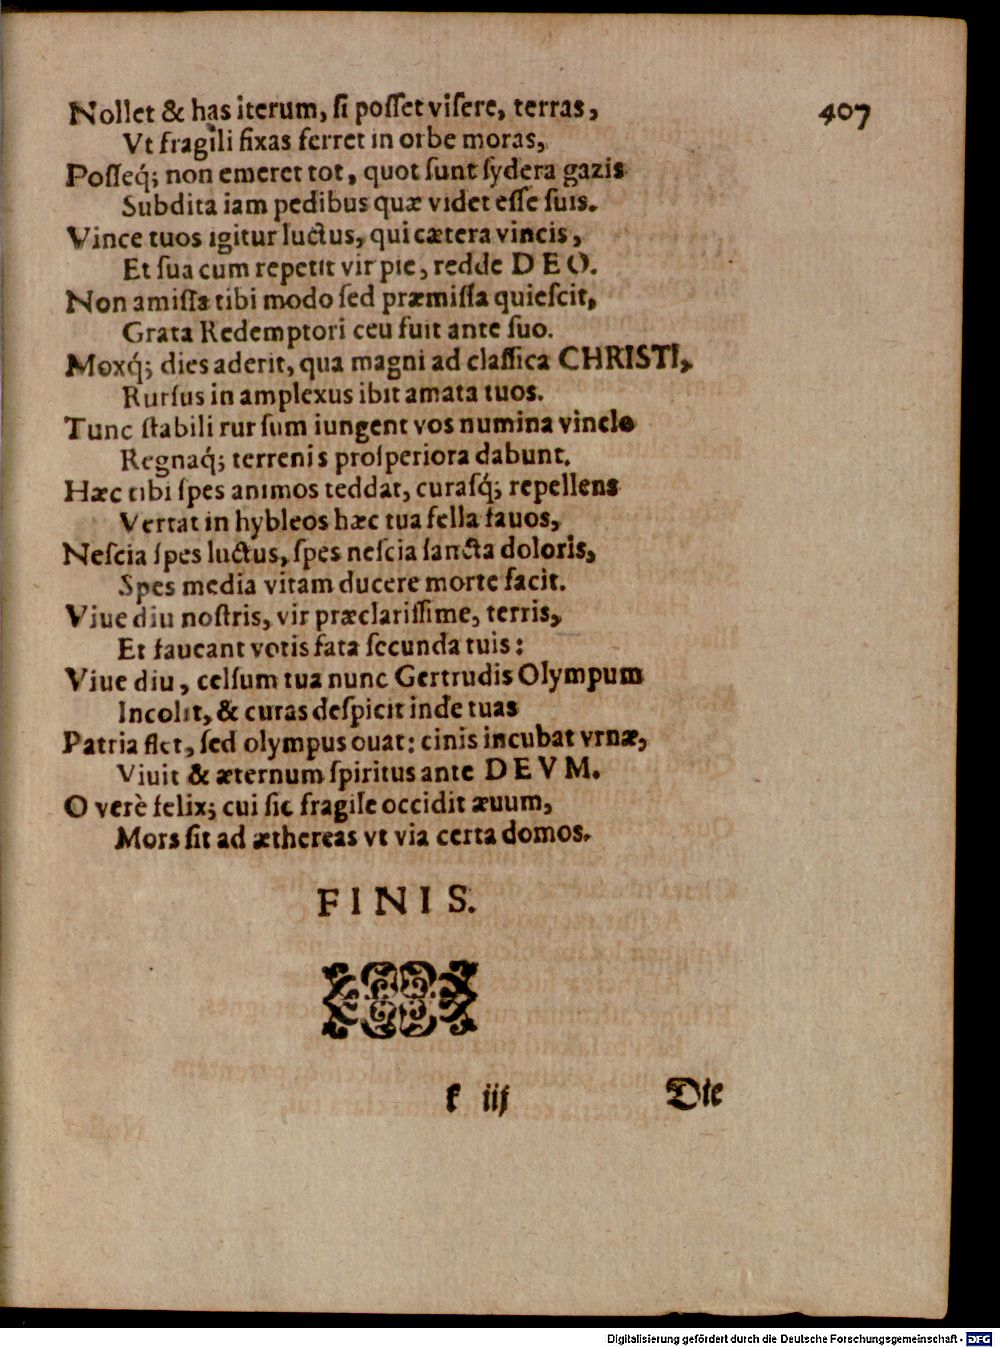 407
Nollet & has iterum, ſi poſſet viſere, terras,
Vt fragili fixas ferret in orbe moras,
Poſſeq́; non emeret tot, quot ſunt ſydera gazis
Subdita iam pedibus quæ videt eſſe ſuis.
Vince tuos igitur luctus, qui cætera vincis,
Et ſua cum repetit vir pie, redde DEO.
Non amiſſa tibi modo ſed præmiſſa quieſcit,
Grata Redemptori ceu fuit ante ſuo.
Moxq́; dies aderit, qua magni ad claſſica CHRISTI,
Rurſus in amplexus ibit amata tuos.
Tunc ſtabili rurſum iungent vos numina vinclo
Regnaq́; terrenis proſperiora dabunt.
Hæc tibi ſpes animos teddat, curaſq́; repellens
Vertat in hybleos hæc tua fella fauos,
Neſcia ſpes luctus, ſpes neſcia ſancta doloris,
Spes media vitam ducere morte facit.
Viue diu noſtris, vir præclariſſime, terris,
Et faueant votis fata ſecunda tuis:
Viue diu, celſum tua nunc Gertrudis Olympum
Incolit, & curas deſpicit inde tuas
Patria flet, ſed olympus ouat: cinis incubat vrnæ,
Viuit & æternum ſpiritus ante DEVM.
O verè felix; cui ſic fragile occidit æuum,
Mors ſit ad æthereas vt via certa domos.
FINIS.
k iij Die
Digitalisierung gefördert durch die Deutsche Forschungsgemeinschaft - DFG